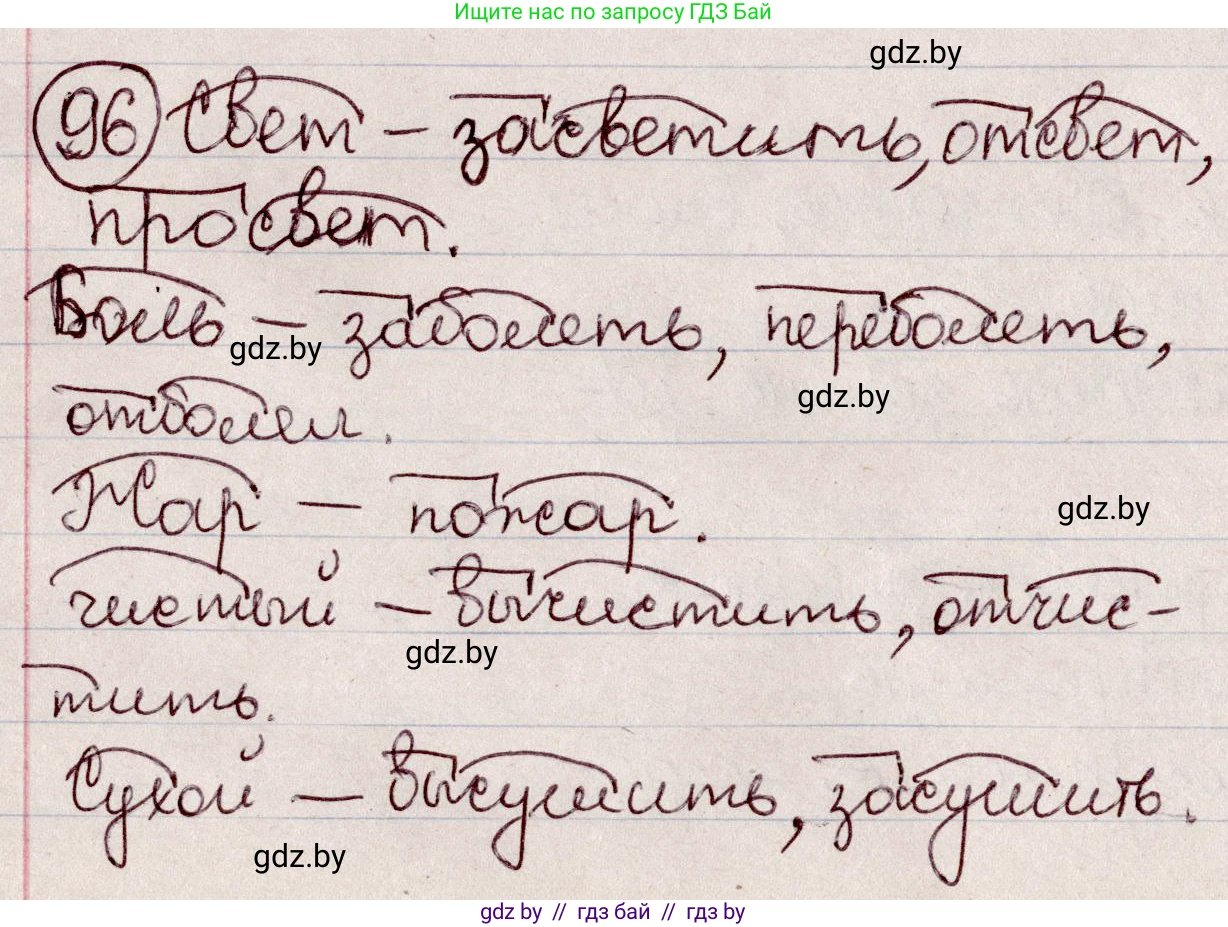 Ищите нас по запросу ГДЗ Бай
gdz.by
96 Свет – засветить, отсвет,
просвет.
Боль – заболеть, переболеть,
gdz.by
gdz.by
отболел.
Жар – пожар.
gdz.by
чистый – вычистить, отчис-
gdz.by
тить.
Сухой – высушить, засушить.
gdz.by
gdz.by // гдз бай // гдз by